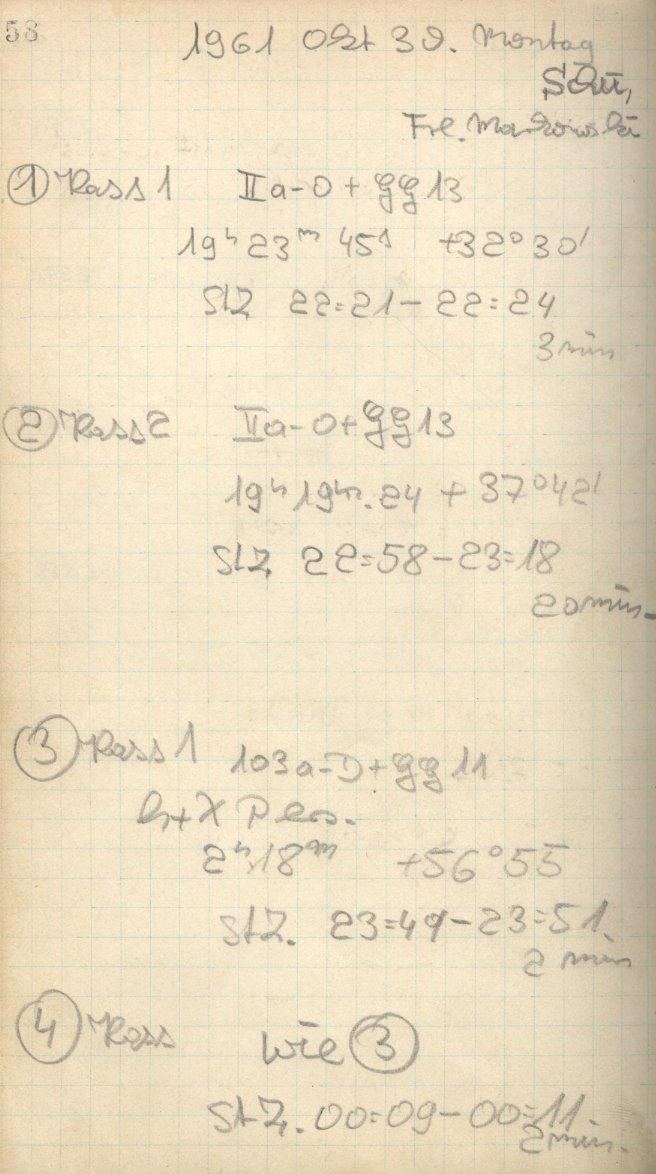 58
1961 Okt 30. Montag
Schü,
Frl. Markowski
① Kass 1 IIa-O + gg 13
19ʰ 23ᵐ 45ˢ +32° 30'
StZ 22=21 – 22=24
3 min
② Kass 2 IIa-O + gg 13
19ʰ 19ᵐ.24 + 37° 42'
StZ 22=58 – 23=18
20 min.
③ Kass 1 103a-D + gg 11
h+χ Pers.
2ʰ 18ᵐ +56° 55
StZ. 23=49 – 23=51.
2 min
④ Kass wie ③
StZ. 00=09 – 00=11.
2 min.